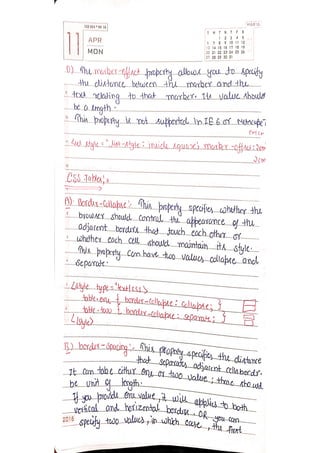 11
APR
MON
D) The marker-offset property allows you to specify
the distance between the marker and the
text relating to that marker. Its value should
be a length.
This property is not supported in IE 6 or Netscape 7
<ul style = "list-style: inside square; marker-offset: 2em
CSS Tables:-
A) Border-collapse:- This property specifies whether the
browser should control the appearance of the
adjacent borders that touch each other or
whether each cell should maintain its style.
This property can have two values collapse and
separate.
<style type="text/css">
table.one { border-collapse: collapse; }
table.two { border-collapse: separate; }
</style>
B) border-spacing:- This property specifies the distance
that separates adjacent cells border.
It can take either one or two value; these should
be unit of length.
If you provide one value, it will applies to both
vertical and horizental borders. OR you can
specify two values, in which case, the first
2016